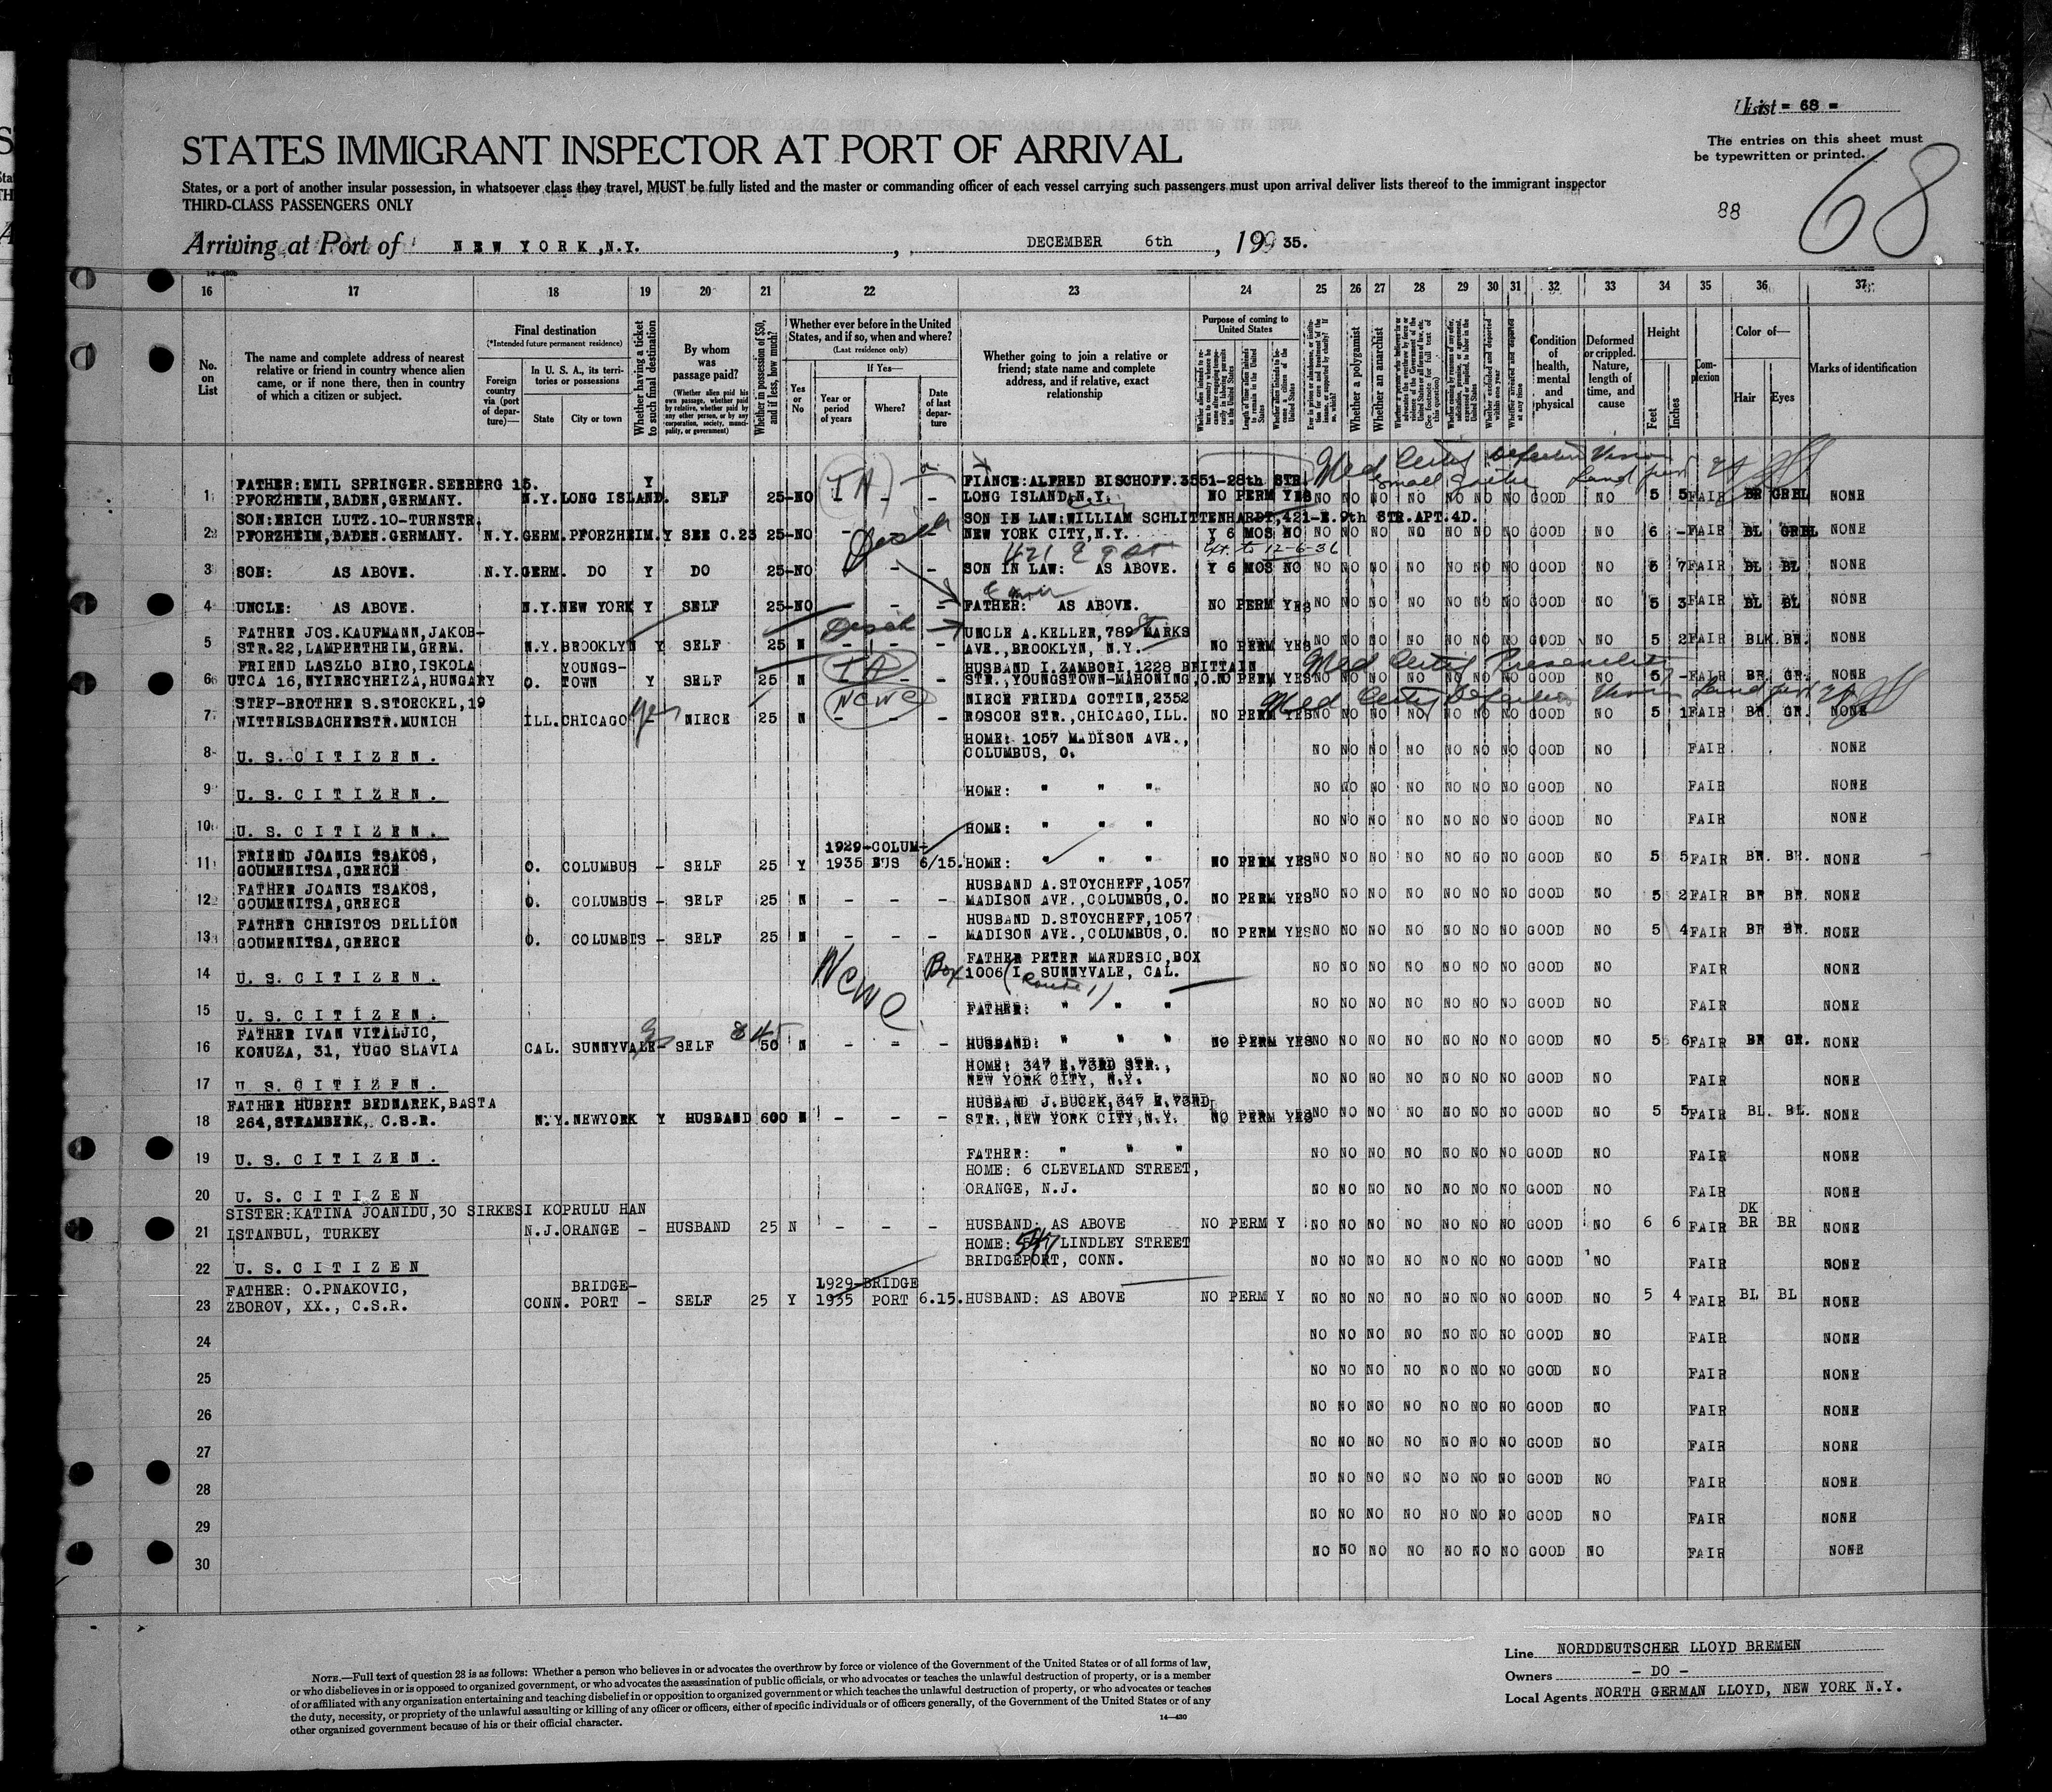 List = 68 =
The entries on this sheet must
be typewritten or printed.
68
88
STATES IMMIGRANT INSPECTOR AT PORT OF ARRIVAL
States, or a port of another insular possession, in whatsoever class they travel, MUST be fully listed and the master or commanding officer of each vessel carrying such passengers must upon arrival deliver lists thereof to the immigrant inspector
THIRD-CLASS PASSENGERS ONLY
Arriving at Port of NEW YORK, N.Y., DECEMBER 6th, 19 35.
16 17 18 19 20 21 22 23 24 25 26 27 28 29 30 31 32 33 34 35 36 37
No. on List
The name and complete address of nearest relative or friend in country whence alien came, or if none there, then in country of which a citizen or subject.
Final destination
(*Intended future permanent residence)
Foreign country via (port of departure)—
In U. S. A., its territories or possessions
State
City or town
Whether having a ticket to such final destination
By whom was passage paid?
(Whether alien paid his own passage, whether paid by relative, whether paid by any other person, or by any corporation, society, municipality, or government)
Whether in possession of $50, and if less, how much?
Whether ever before in the United States, and if so, when and where?
(Last residence only)
Yes or No
If Yes—
Year or period of years
Where?
Date of last departure
Whether going to join a relative or friend; state name and complete address, and if relative, exact relationship
Purpose of coming to United States
Whether a polygamist
Whether an anarchist
Condition of health, mental and physical
Deformed or crippled. Nature, length of time, and cause
Height
Feet
Inches
Complexion
Color of—
Hair
Eyes
Marks of identification
Med Certif Defective Vision
small goitre
1 FATHER:EMIL SPRINGER.SEEBERG 15. Y FIANCE:ALFRED BISCHOFF.3551-28th STR.
PFORZHEIM,BADEN,GERMANY. N.Y. LONG ISLAND. SELF 25 -NO - - - LONG ISLAND, N.Y. NO PERM YES NO NO NO NO NO NO NO GOOD NO 5 5 FAIR BR GREL NONE
2 SON:ERICH LUTZ.10-TURNSTR. SON IN LAW:WILLIAM SCHLITTENHARDT,421-E.9th STR.APT.4D.
PFORZHEIM,BADEN.GERMANY. N.Y. GERM. PFORZHEIM. Y SEE C.23 25 -NO - NEW YORK CITY,N.Y. Y 6 MOS NO NO NO NO NO NO NO NO GOOD NO 6 - FAIR BL GREL NONE
421 E 9 St
Ext. to 12-6-36
3 SON: AS ABOVE. N.Y. GERM. DO Y DO 25 -NO - - - SON IN LAW: AS ABOVE. Y 6 MOS NO NO NO NO NO NO NO NO GOOD NO 5 7 FAIR BL BL NONE
4 UNCLE: AS ABOVE. N.Y. NEW YORK Y SELF 25 -NO - - FATHER: AS ABOVE. NO PERM YES NO NO NO NO NO NO NO GOOD NO 5 3 FAIR BL BL NONE
5 FATHER JOS.KAUFMANN,JAKOB- UNCLE A.KELLER,789 St MARKS
STR.22,LAMPERTHEIM,GERM. N.Y. BROOKLYN Y SELF 25 N - - - AVE.,BROOKLYN, N.Y. NO PERM YES NO NO NO NO NO NO NO GOOD NO 5 2 FAIR BLK BR. NONE
6 FRIEND LASZLO BIRO,ISKOLA YOUNGS- HUSBAND I.ZAMBORI,1228 BRITTAIN
UTCA 16,NYIRECYHEIZA,HUNGARY O. TOWN Y SELF 25 N - - - STR.,YOUNGSTOWN-MAHONING,O. NO PERM YES NO NO NO NO NO NO NO GOOD NO 5 - FAIR BR. GR. NONE
Med Certif Defective Vision
7 STEP-BROTHER S.STOECKEL,19 NCWC NIECE FRIEDA COTTIN,2352
WITTELSBACHERSTR.MUNICH ILL. CHICAGO yes NIECE 25 N - - - ROSCOE STR.,CHICAGO,ILL. NO PERM YES NO NO NO NO NO NO NO GOOD NO 5 1 FAIR BR. GR. NONE
8 U. S. CITIZEN. HOME: 1057 MADISON AVE.,
COLUMBUS, O. NO NO NO NO NO NO NO GOOD NO FAIR NONE
9 U. S. CITIZEN. HOME: " " " NO NO NO NO NO NO NO GOOD NO FAIR NONE
10 U. S. CITIZEN. HOME: " " " NO NO NO NO NO NO NO GOOD NO FAIR NONE
11 FRIEND JOANIS TSAKOS, 1929-COLUM-
GOUMENITSA,GREECE O. COLUMBUS - SELF 25 Y 1935 BUS 6/15. HOME: " " NO PERM YES NO NO NO NO NO NO NO GOOD NO 5 5 FAIR BR. BR. NONE
12 FATHER JOANIS TSAKOS, HUSBAND A.STOYCHEFF,1057
GOUMENITSA,GREECE O. COLUMBUS - SELF 25 N - - - MADISON AVE.,COLUMBUS,O. NO PERM YES NO NO NO NO NO NO NO GOOD NO 5 2 FAIR BR BR. NONE
13 FATHER CHRISTOS DELLION HUSBAND D.STOYCHEFF,1057
GOUMENITSA,GREECE O. COLUMBUS - SELF 25 N - - - MADISON AVE.,COLUMBUS,O. NO PERM YES NO NO NO NO NO NO NO GOOD NO 5 4 FAIR BR BR. NONE
14 U. S. CITIZEN. NCWC Box FATHER PETER MARDESIC,BOX
1006 I, SUNNYVALE, CAL. NO NO NO NO NO NO NO GOOD NO FAIR NONE
(Route 1)
15 U. S. CITIZEN. FATHER: " " " NO NO NO NO NO NO NO GOOD NO FAIR NONE
16 FATHER IVAN VITALJIC,
KONUZA, 31, YUGO SLAVIA CAL. SUNNYVALE- SELF 50 N - - - HUSBAND: " " " NO PERM YES NO NO NO NO NO NO NO GOOD NO 5 6 FAIR BR GR. NONE
17 U. S. CITIZEN. HOME: 347 E.73RD STR.,
NEW YORK CITY, N.Y. NO NO NO NO NO NO NO GOOD NO FAIR NONE
18 FATHER HUBERT BEDNAREK,BASTA HUSBAND J.BUCEK,347 E.73RD
264,STRAMBERK, C.S.R. N.Y. NEWYORK Y HUSBAND 600 N - - - STR.,NEW YORK CITY,N.Y. NO PERM YES NO NO NO NO NO NO NO GOOD NO 5 5 FAIR BL. BL. NONE
19 U. S. CITIZEN. FATHER: " " " NO NO NO NO NO NO NO GOOD NO FAIR NONE
20 U. S. CITIZEN HOME: 6 CLEVELAND STREET,
ORANGE, N.J. NO NO NO NO NO NO NO GOOD NO FAIR NONE
21 SISTER:KATINA JOANIDU,30 SIRKESI KOPRULU HAN DK
ISTANBUL, TURKEY N.J. ORANGE - HUSBAND 25 N - - - HUSBAND: AS ABOVE NO PERM Y NO NO NO NO NO NO NO GOOD NO 6 6 FAIR BR BR NONE
22 U. S. CITIZEN HOME: 547 LINDLEY STREET
BRIDGEPORT, CONN. NO NO NO NO NO NO NO GOOD NO FAIR NONE
23 FATHER: O.PNAKOVIC, BRIDGE- 1929-BRIDGE
ZBOROV, XX., C.S.R. CONN. PORT - SELF 25 Y 1935 PORT 6.15. HUSBAND: AS ABOVE NO PERM Y NO NO NO NO NO NO NO GOOD NO 5 4 FAIR BL BL NONE
24 NO NO NO NO NO NO NO GOOD NO FAIR NONE
25 NO NO NO NO NO NO NO GOOD NO FAIR NONE
26 NO NO NO NO NO NO NO GOOD NO FAIR NONE
27 NO NO NO NO NO NO NO GOOD NO FAIR NONE
28 NO NO NO NO NO NO NO GOOD NO FAIR NONE
29 NO NO NO NO NO NO NO GOOD NO FAIR NONE
30 NO NO NO NO NO NO NO GOOD NO FAIR NONE
NOTE.—Full text of question 28 is as follows: Whether a person who believes in or advocates the overthrow by force or violence of the Government of the United States or of all forms of law,
or who disbelieves in or is opposed to organized government, or who advocates the assassination of public officials, or who advocates or teaches the unlawful destruction of property, or is a member
of or affiliated with any organization entertaining and teaching disbelief in or opposition to organized government or which teaches the unlawful destruction of property, or who advocates or teaches
the duty, necessity, or propriety of the unlawful assaulting or killing of any officer or officers, either of specific individuals or of officers generally, of the Government of the United States or of any
other organized government because of his or their official character.
14—430
Line NORDDEUTSCHER LLOYD BREMEN
Owners - DO -
Local Agents NORTH GERMAN LLOYD, NEW YORK N.Y.